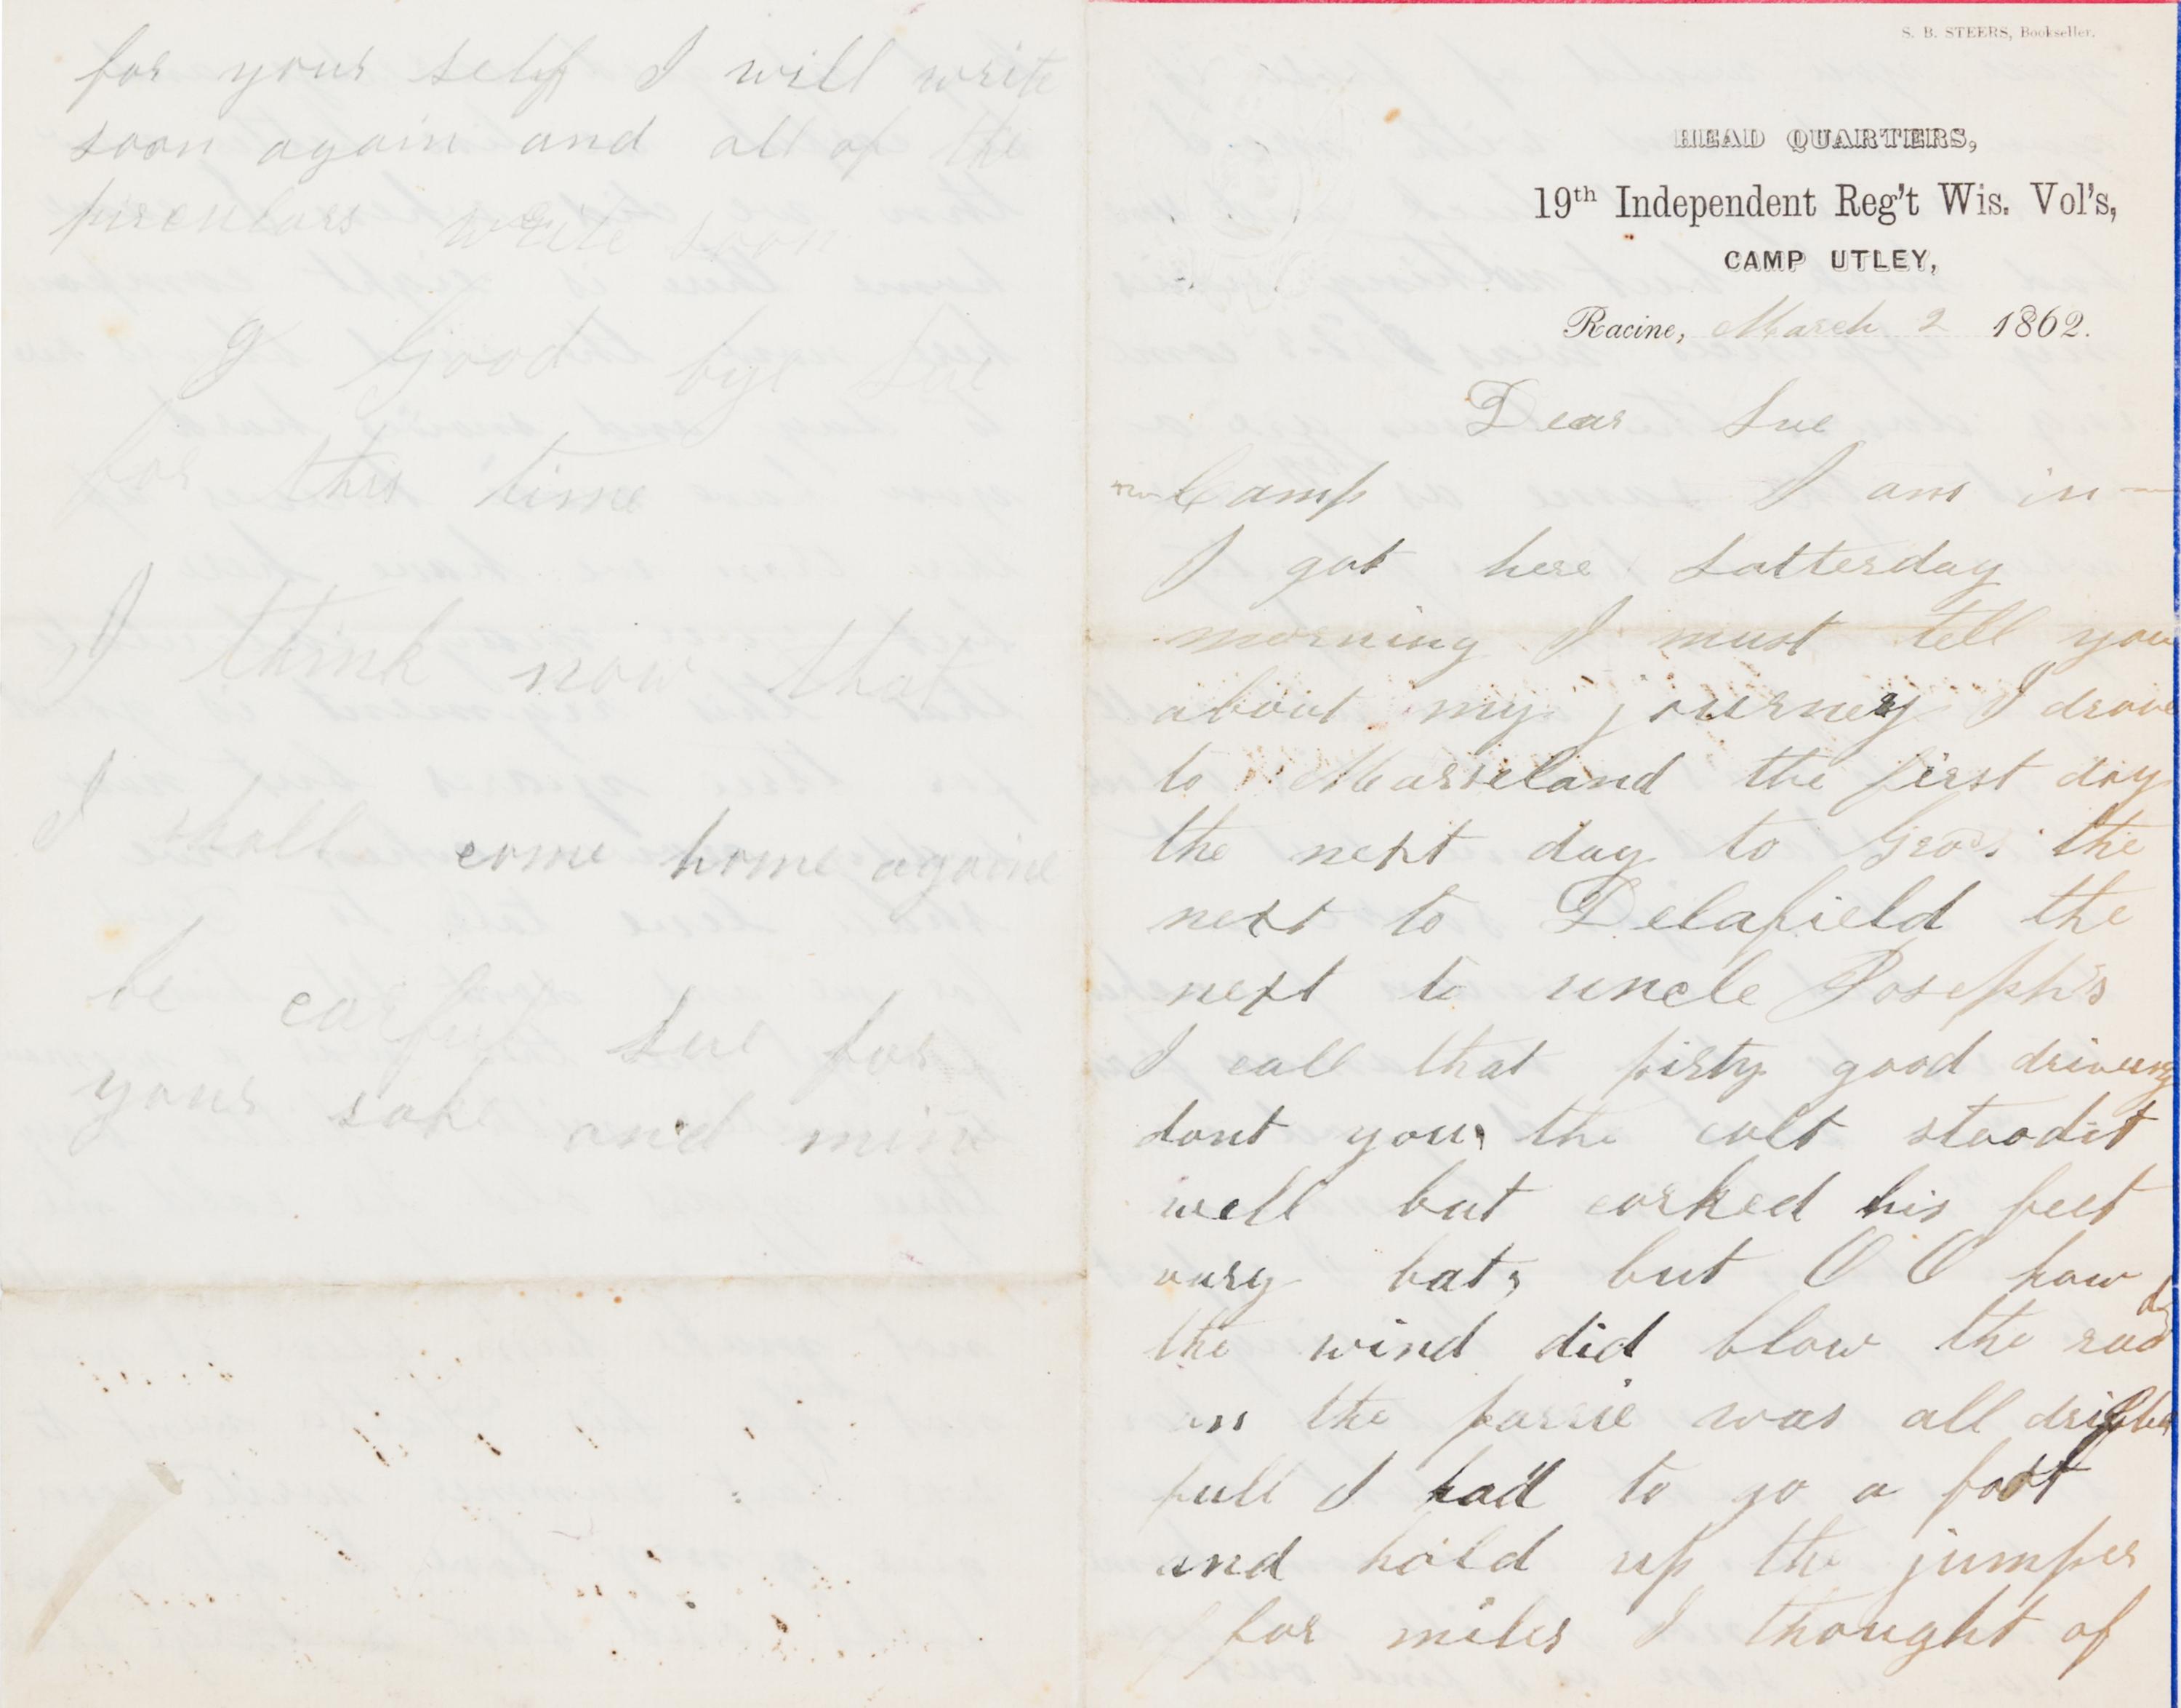 for your self I will write
soon again and all of the
pirenlars write soon
g Good bye Sue
for this time
I think now that
I shall come home againe
be carful Sue for
your sake and mine
S. B. STEERS, Bookseller.
HEAD QUARTERS,
19th Independent Reg't Wis. Vol's,
CAMP UTLEY,
Racine, March 2 1862.
Dear Sue
Camp I am in
I got here Satterday
morning I must tell you
about my journey I drove
to Marseland the first day
the next day to the
next to Delafield the
next to uncle Joseph's
I call that pirty good driveing
dont you, the colt stoodit
well but corked his feet
vary bat, but O O how
the wind did blow the road
on the parrie was all drifted
full I had to go a foot
and hold up the jumper
for miles I thought of